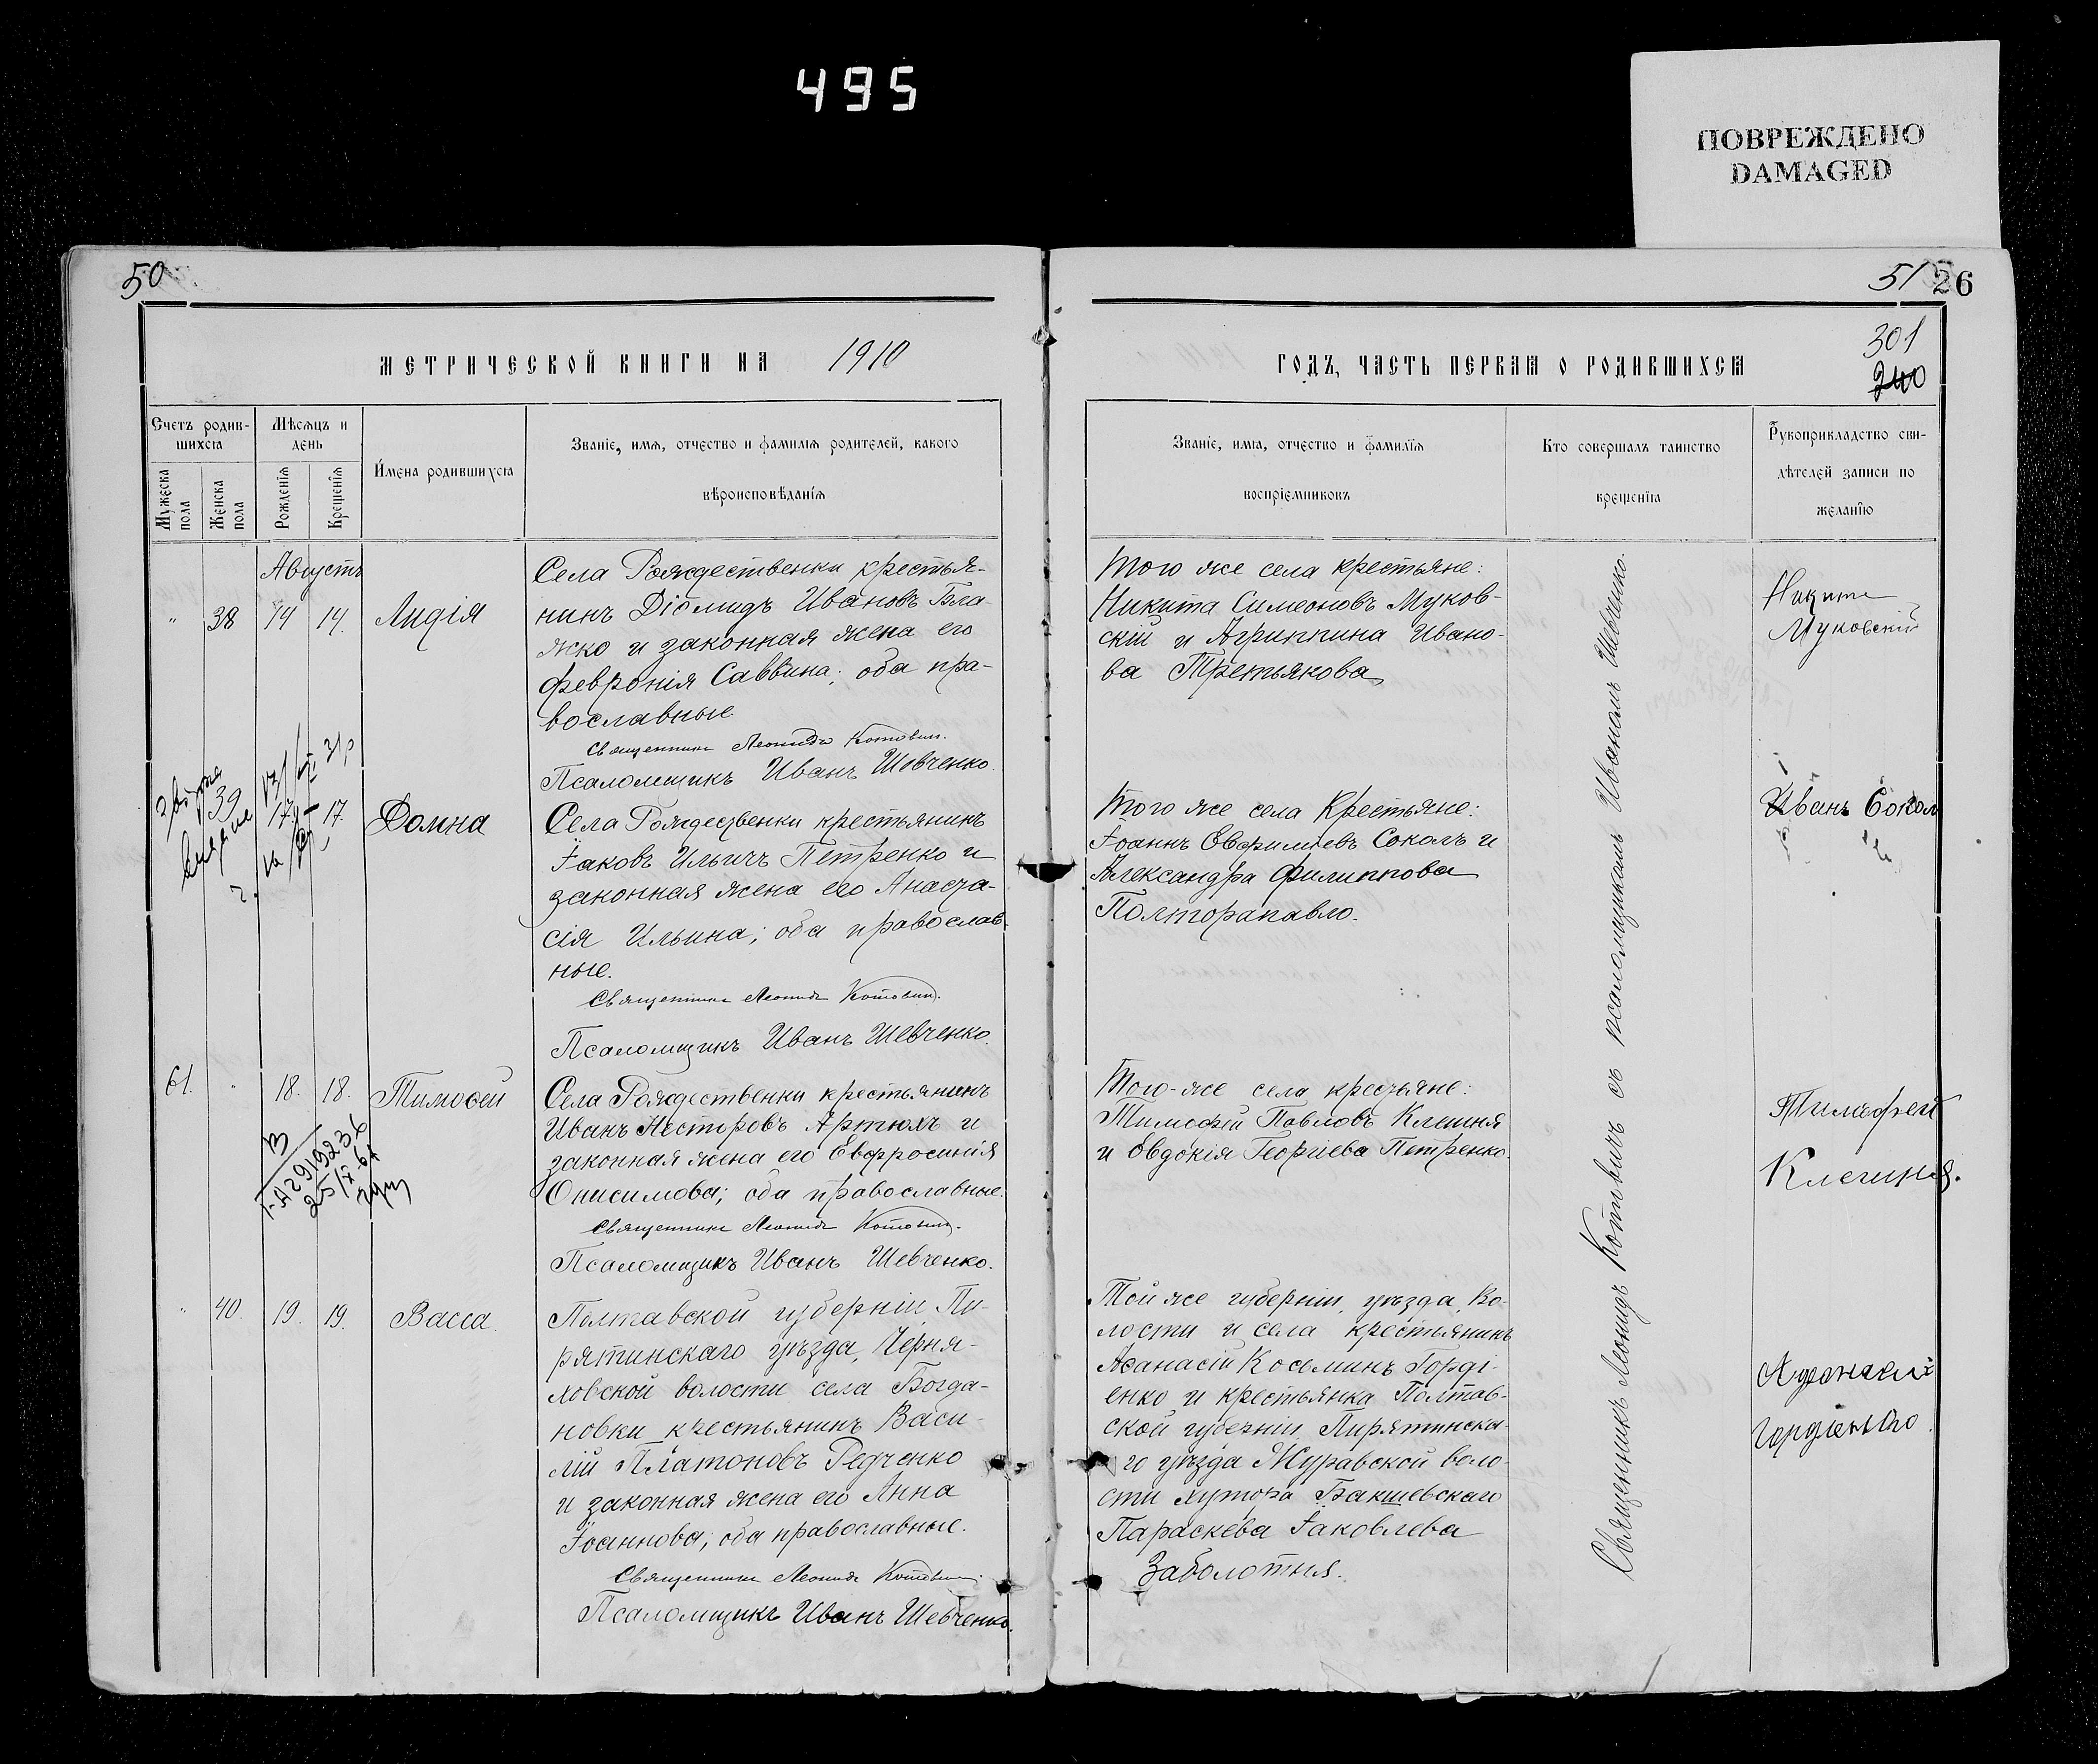 495
ПОВРЕЖДЕНО
DAMAGED
50
МЕТРИЧЕСКОЙ КНИГИ НА 1910
Счетъ родив-
шихся
Мѣсяцъ и
день
Мужеска
пола
Женска
пола
Рожденія
Крещенія
Имена родившихся
Званіе, имя, отчество и фамилія родителей, какого
вѣроисповѣданія
Августъ
" 38 14 14. Лидія
Села Рождественки крестья-
нинъ Діомидъ Ивановъ Бла-
жко и законная жена его
Февронія Саввина; оба пра-
вославные.
Священникъ Леонидъ Котовичъ.
Псаломщикъ Иванъ Шевченко.
39 17. 17. Домна
Села Рождественки крестьянинъ
Іаковъ Ильичъ Петренко и
законная жена его Анаста-
сія Ильина; оба православ-
ные.
Священникъ Леонидъ Котовичъ.
Псаломщикъ Иванъ Шевченко.
61. " 18. 18. Тимоѳей
Села Рождественки крестьянинъ
Иванъ Несторовъ Артюхъ и
законная жена его Евфросинія
Онисимова; оба православные.
Священникъ Леонидъ Котовичъ.
Псаломщикъ Иванъ Шевченко.
" 40. 19. 19. Васса
Полтавской губерніи, Пи-
рятинскаго уѣзда, Черня-
ховской волости села Богда-
новки крестьянинъ Васи-
лій Платоновъ Редченко
и законная жена его Анна
Іоаннова; оба православные.
Священникъ Леонидъ Котовичъ.
Псаломщикъ Иванъ Шевченко.
51 26
301
240
ГОДЪ, ЧАСТЬ ПЕРВАЯ О РОДИВШИХСЯ
Званіе, имя, отчество и фамилія
воспріемниковъ
Кто совершалъ таинство
крещенія
Рукоприкладство сви-
дѣтелей записи по
желанію
Того же села крестьяне:
Никита Симеоновъ Муков-
скій и Агриппина Ивано-
ва Третьякова
Никита
Муковскій
Того же села Крестьяне:
Іоаннъ Евфиміевъ Соколъ и
Александра Филиппова
Полторапавло.
Иванъ Сокол
Того-же села крестьяне:
Тимофей Павловъ Клешня
и Евдокія Георгіева Петренко.
Тимафей
Клешня.
Той же губерніи, уѣзда, во-
лости и села крестьянинъ
Аѳанасій Косьминъ Горді-
енко и крестьянка Полтав-
ской губерніи, Пирятинска-
го уѣзда Журавской воло-
сти хутора Бакшевскаго
Параскева Іаковлева
Заболотня.
Гордіенко
Священникъ Леонидъ Котовичъ съ псаломщикомъ Иваномъ Шевченко.